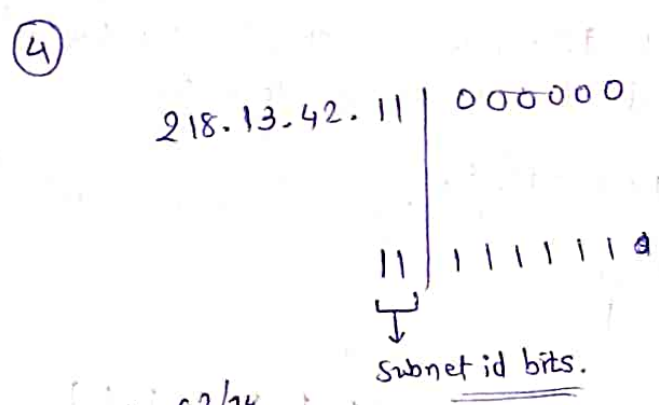 4
218.13.42.11 | 000000
11 | 11111
Subnet id bits.